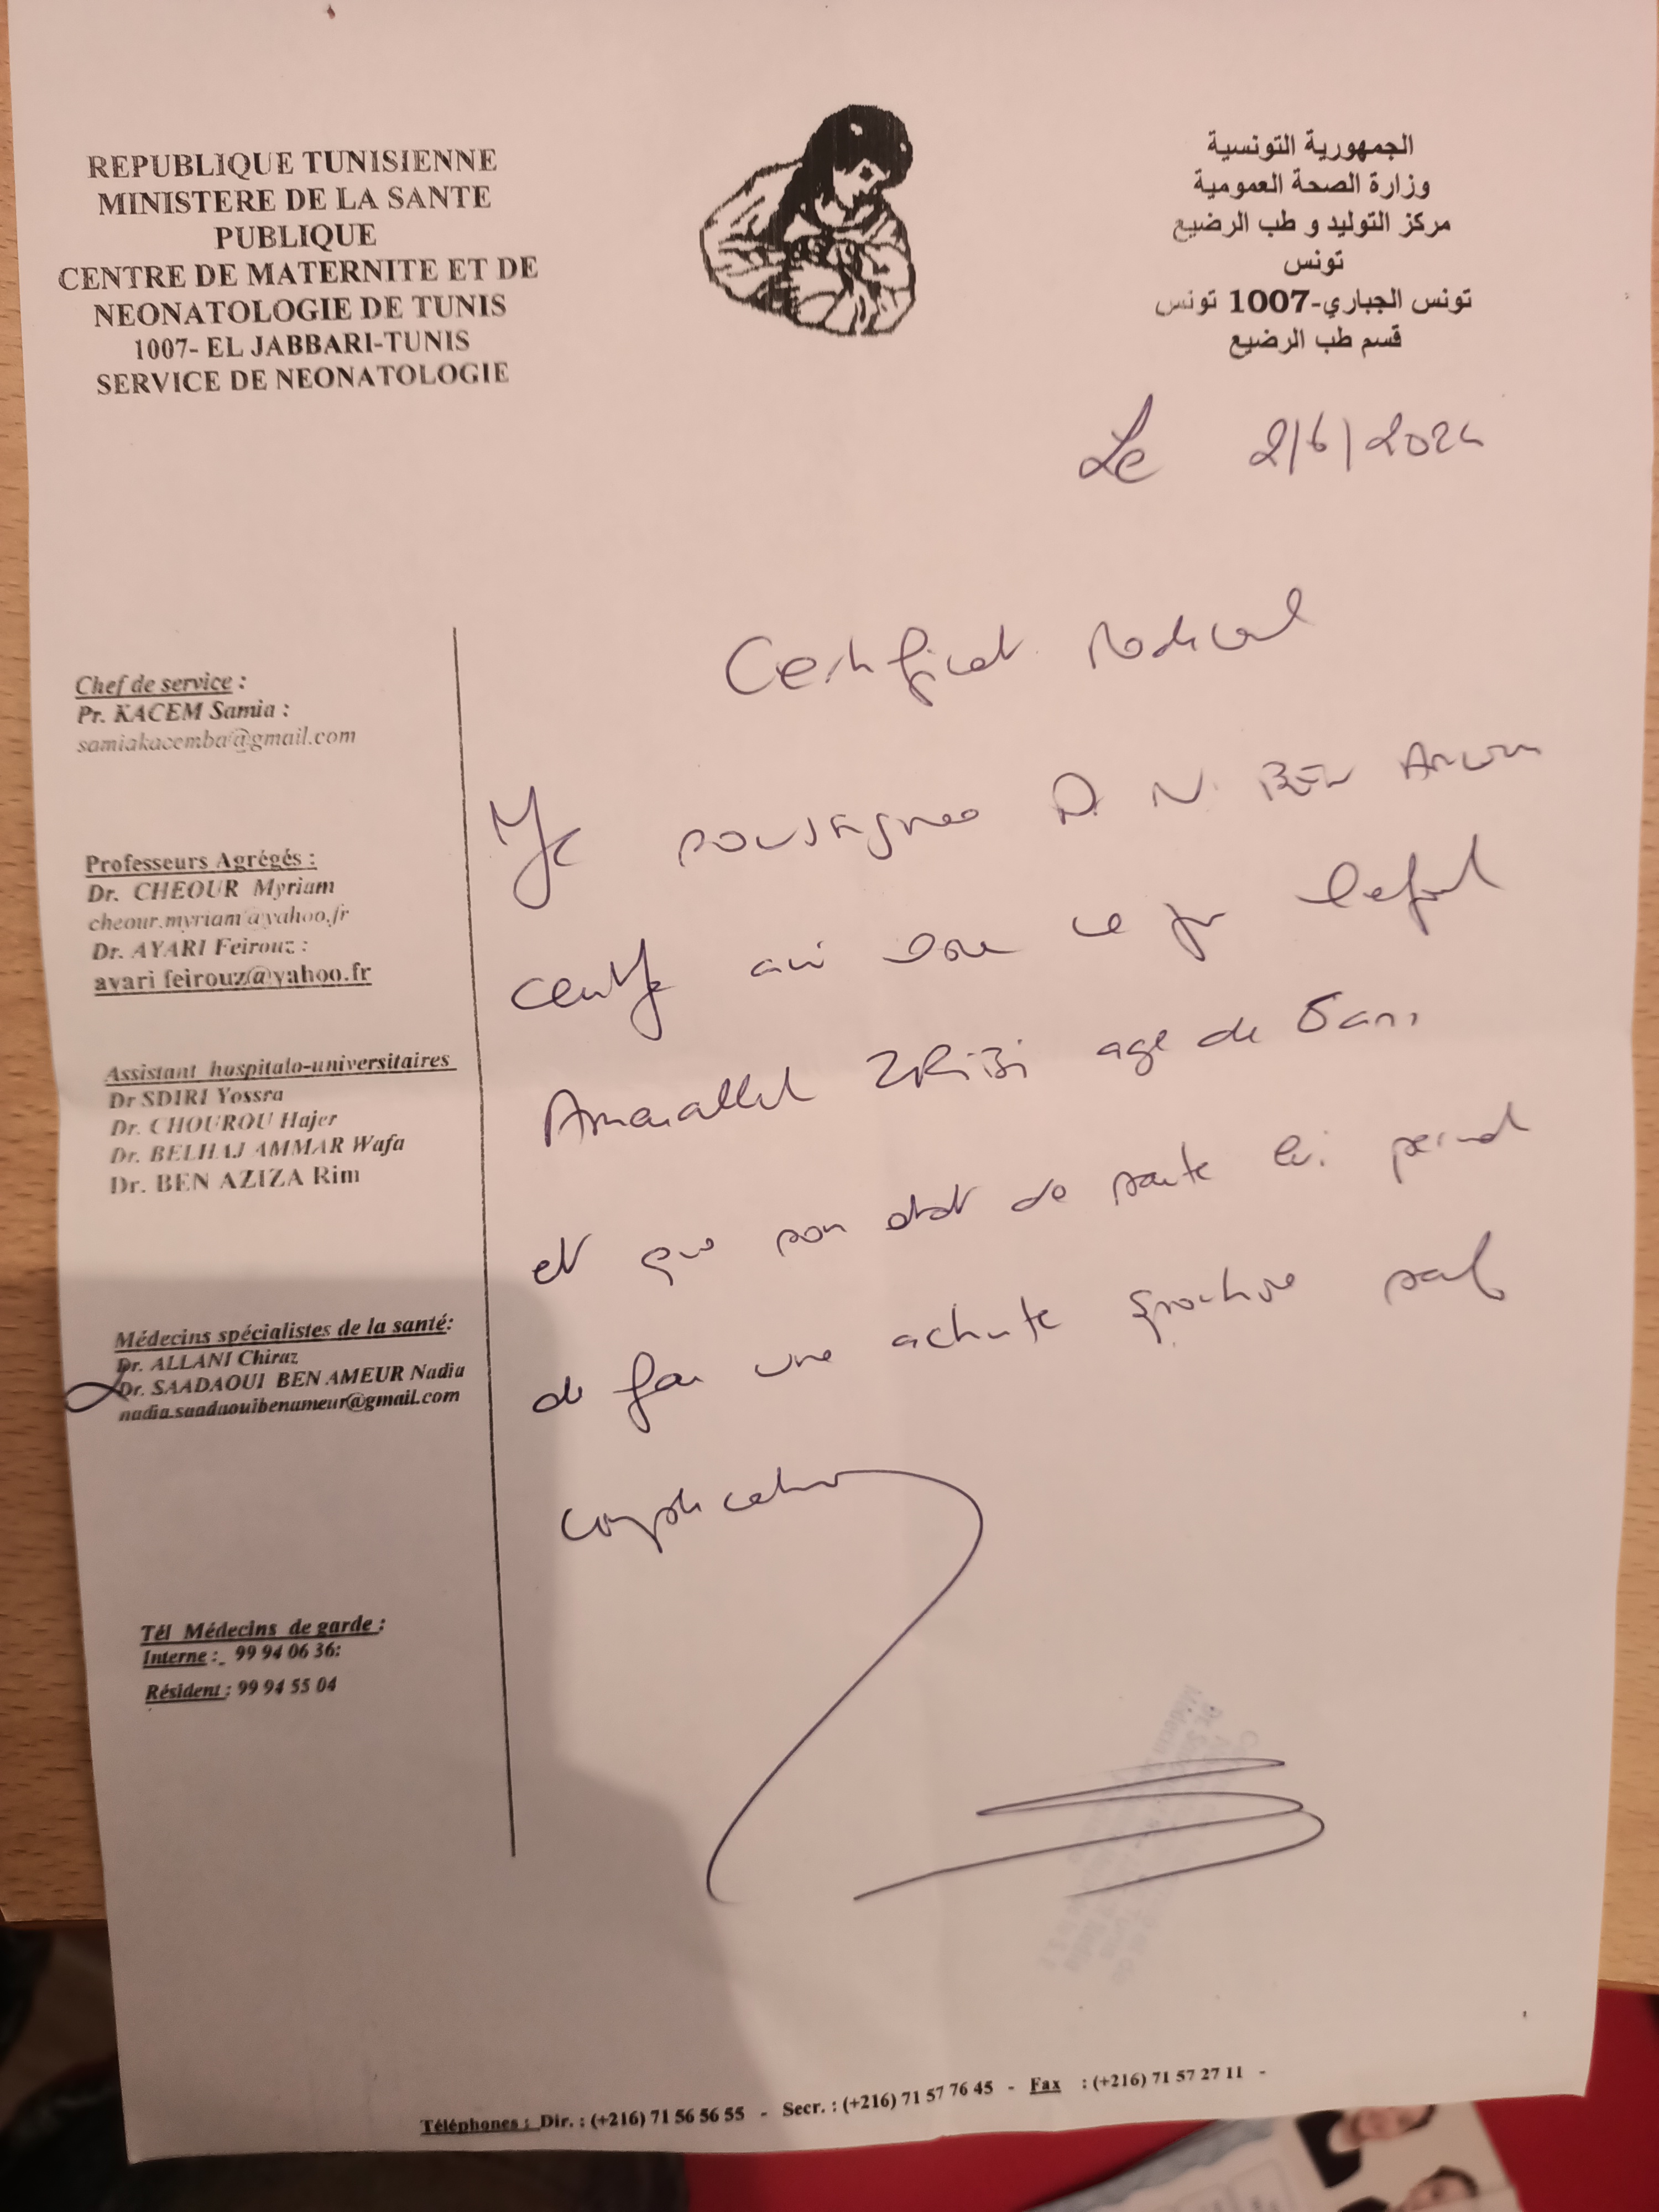 REPUBLIQUE TUNISIENNE
MINISTERE DE LA SANTE
PUBLIQUE
CENTRE DE MATERNITE ET DE
NEONATOLOGIE DE TUNIS
1007- EL JABBARI-TUNIS
SERVICE DE NEONATOLOGIE
الجمهورية التونسية
وزارة الصحة العمومية
مركز التوليد و طب الرضيع
تونس
تونس الجباري-1007 تونس
قسم طب الرضيع
Le 2/6/2024
Certificat Medical
Je soussignee D. N. BEN Ameur
certifie avoir vu ce jour l'enfant
ZRIBI age de 5 ans
et que son etat de sante lui permet
de faire une activite sportive sauf
complication
Chef de service :
Pr. KACEM Samia :
samiakacemba@gmail.com
Professeurs Agrégés :
Dr. CHEOUR Myriam
cheour.myriam@yahoo.fr
Dr. AYARI Feirouz :
ayari feirouz@yahoo.fr
Assistant hospitalo-universitaires
Dr SDIRI Yossra
Dr. CHOUROU Hajer
Dr. BELHAJ AMMAR Wafa
Dr. BEN AZIZA Rim
Médecins spécialistes de la santé:
Dr. ALLANI Chiraz
Dr. SAADAOUI BEN AMEUR Nadia
nadia.saadaouibenameur@gmail.com
Tél Médecins de garde :
Interne : 99 94 06 36:
Résident : 99 94 55 04
Téléphones : Dir. : (+216) 71 56 56 55 - Secr. : (+216) 71 57 76 45 - Fax : (+216) 71 57 27 11 -